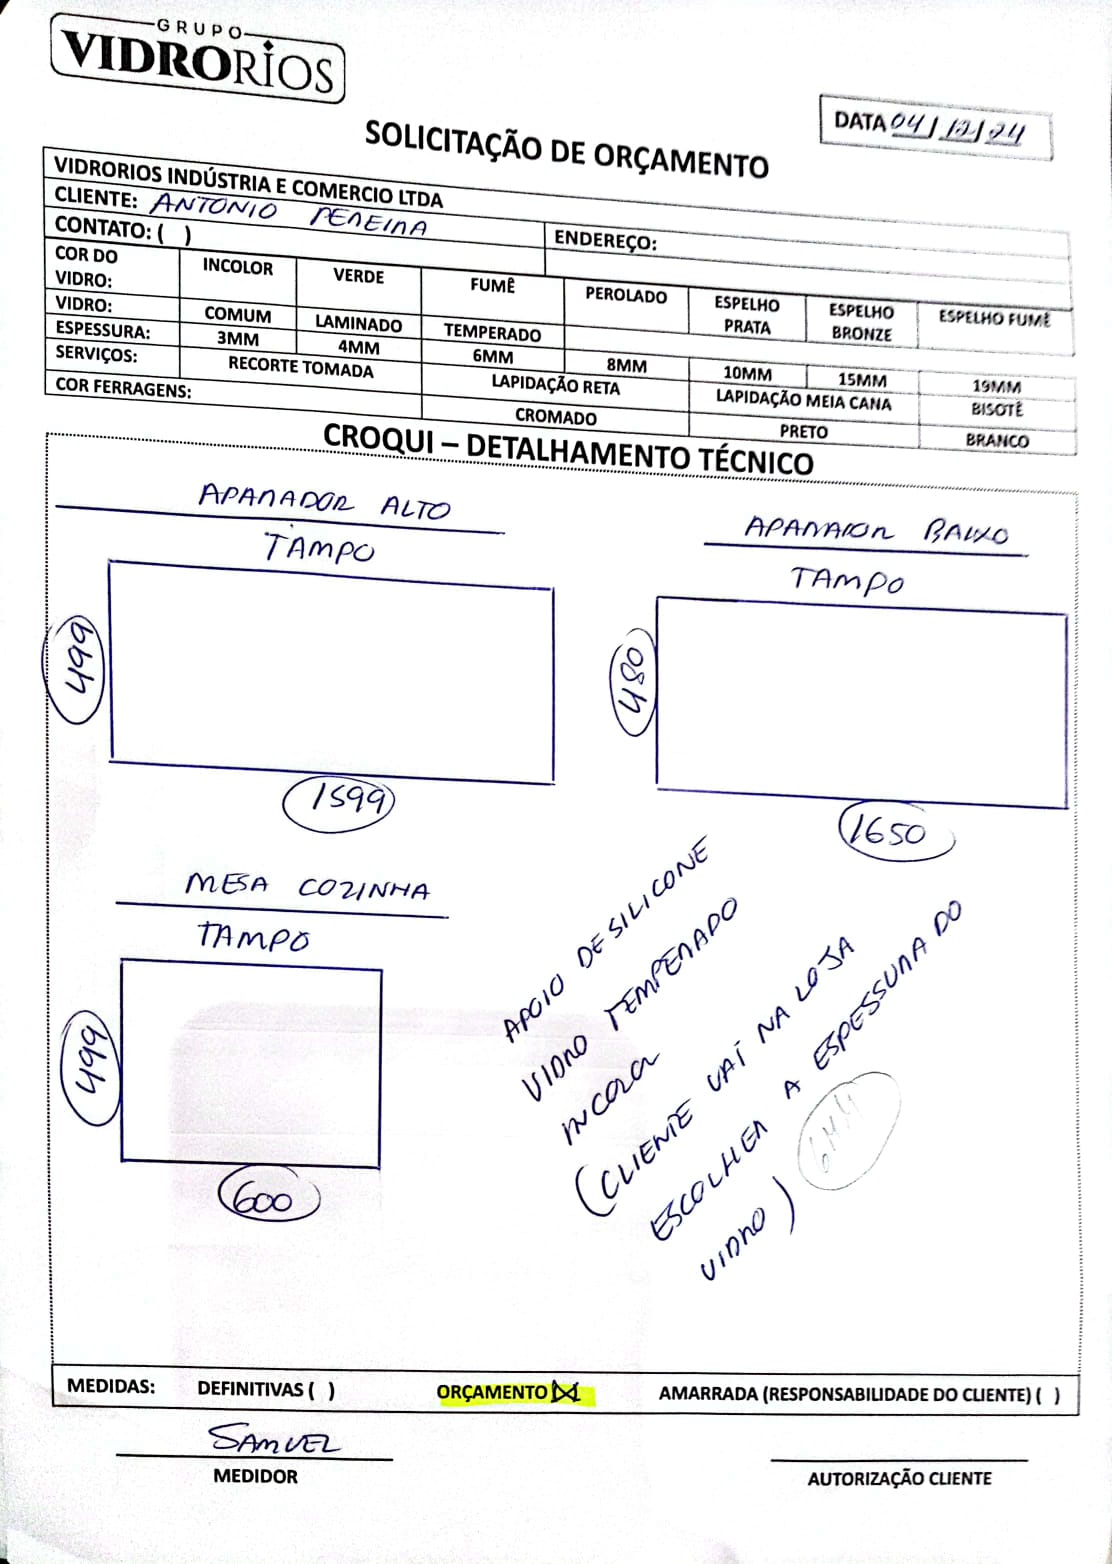 GRUPO
VIDRORIOS
DATA 04/12/24
SOLICITAÇÃO DE ORÇAMENTO
VIDRORIOS INDÚSTRIA E COMERCIO LTDA
CLIENTE: ANTONIO PEREIRA
CONTATO: ( ) ENDEREÇO:
COR DO VIDRO: INCOLOR VERDE FUMÊ PEROLADO ESPELHO PRATA ESPELHO BRONZE ESPELHO FUMÊ
VIDRO: COMUM LAMINADO TEMPERADO
ESPESSURA: 3MM 4MM 6MM 8MM 10MM 15MM 19MM
SERVIÇOS: RECORTE TOMADA LAPIDAÇÃO RETA LAPIDAÇÃO MEIA CANA BISOTÊ
COR FERRAGENS: CROMADO PRETO BRANCO
CROQUI – DETALHAMENTO TÉCNICO
APARADOR ALTO
TAMPO
499
1599
APARADOR BAIXO
TAMPO
480
1650
MESA COZINHA
TAMPO
499
600
APOIO DE SILICONE
VIDRO TEMPERADO
INCOLOR
(CLIENTE VAI NA LOJA
ESCOLHER A ESPESSURA DO
VIDRO)
6MM
MEDIDAS: DEFINITIVAS ( ) ORÇAMENTO (X) AMARRADA (RESPONSABILIDADE DO CLIENTE) ( )
SAMUEL
MEDIDOR
AUTORIZAÇÃO CLIENTE